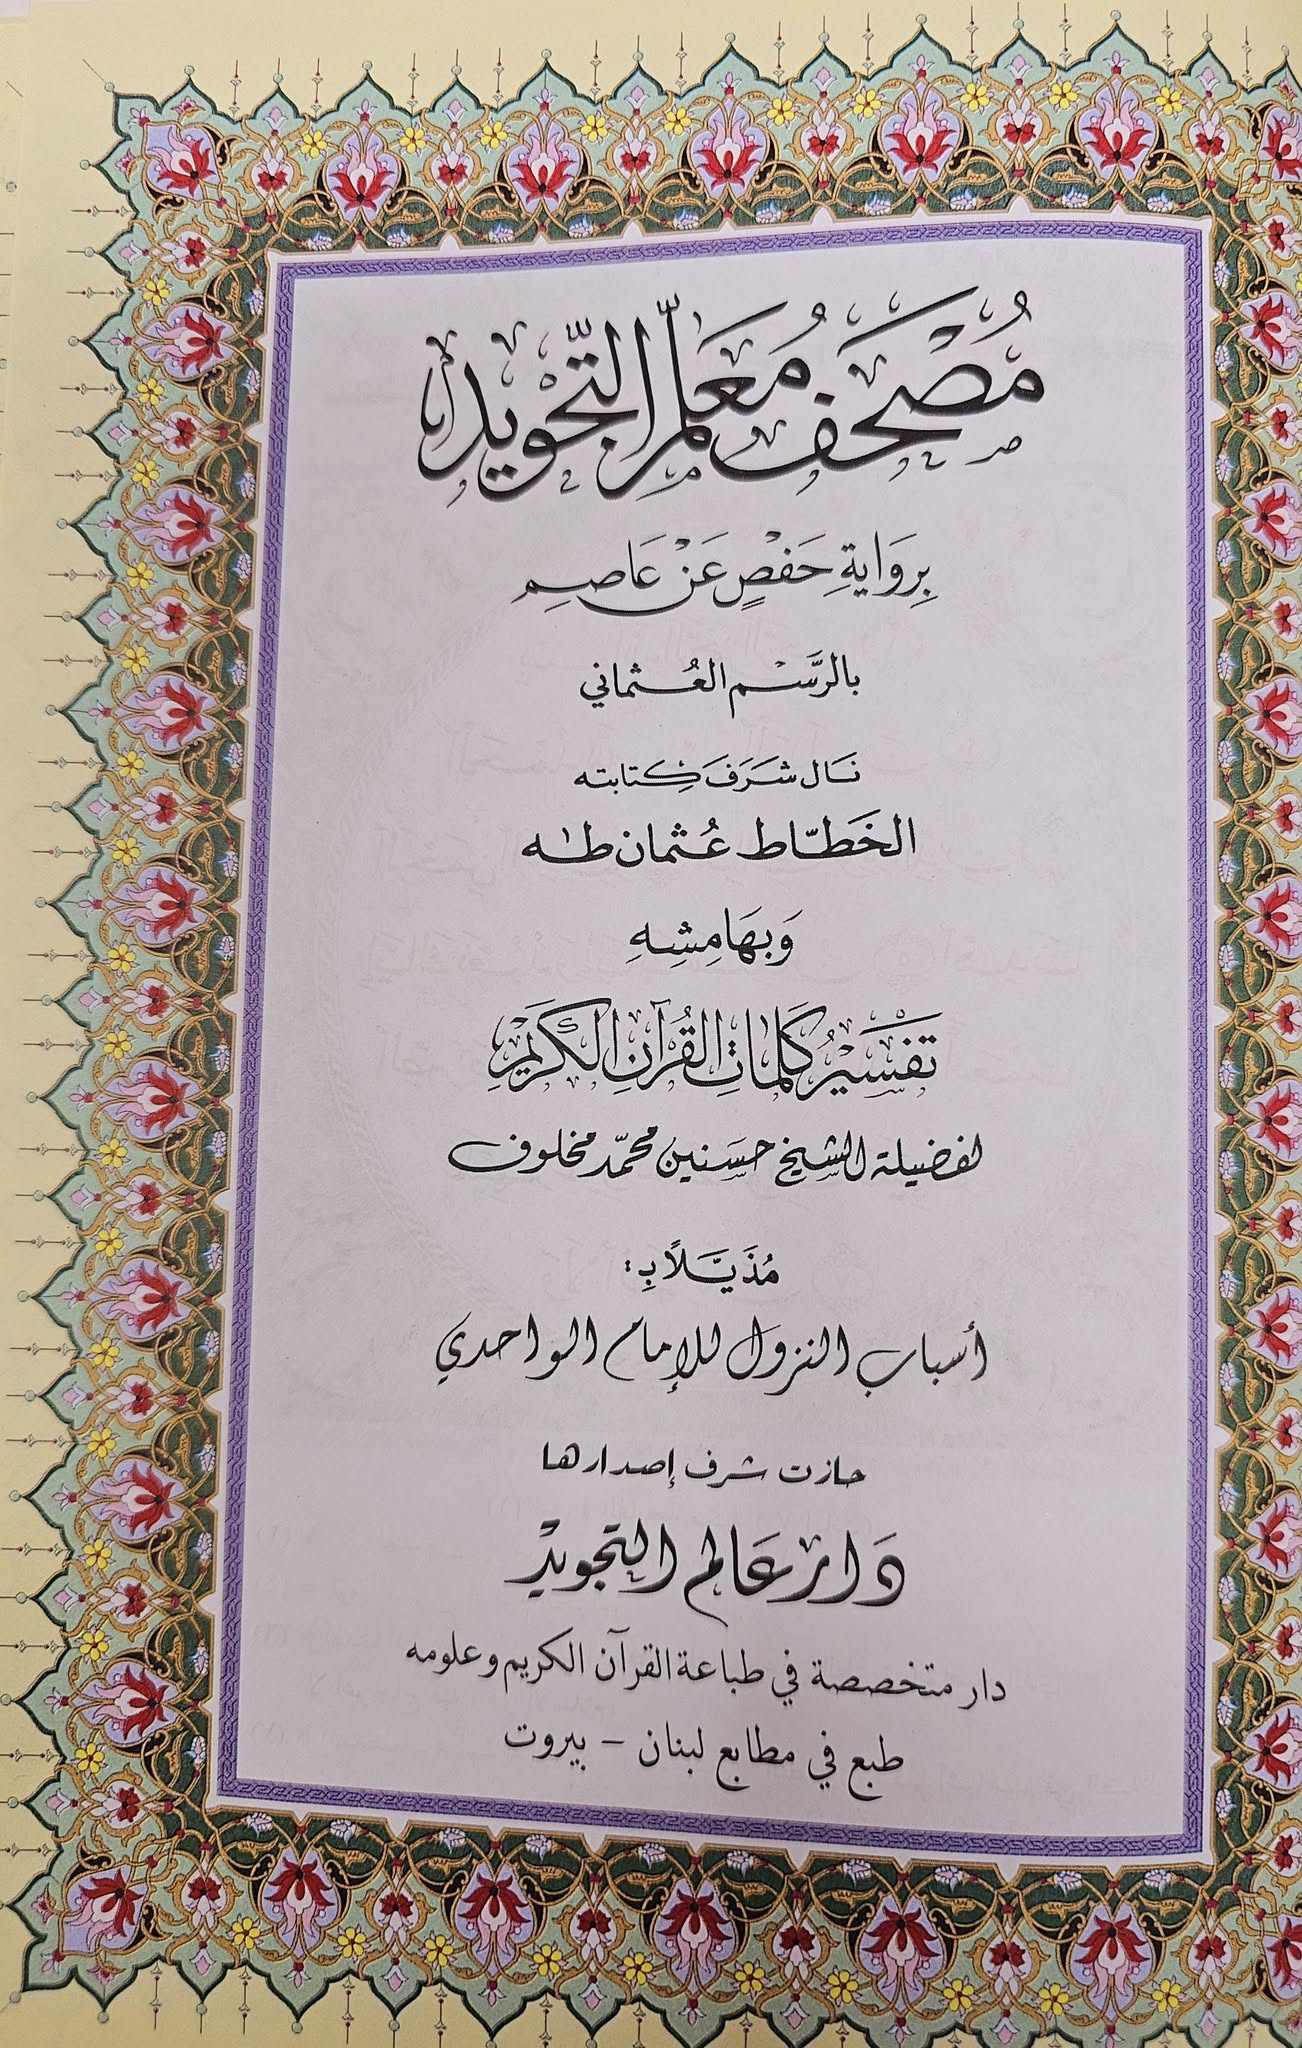 مُصْحَفُ مُعَلِّمِ التَّجْوِيدِ
بِرِوَايَةِ حَفْصٍ عَنْ عَاصِمٍ
بالرَّسْمِ العُثماني
نَال شَرَفَ كِتابته
الخَطّاط عُثمان طٰه
وَبِهَامِشِهِ
تَفْسِيْرُ كَلِمَاتِ القُرْآنِ الكَرِيْمِ
لفضيلة الشيخ حسَنين محمّد مخلوف
مُذَيَّلاً بِ:
أسباب النزول للإمام الواحدي
حازت شرف إصدارها
دَار عَالم التجويدْ
دار متخصصة في طباعة القرآن الكريم وعلومه
طبع في مطابع لبنان – بيروت